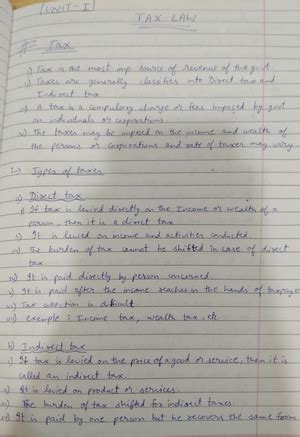 UNIT-I
TAX LAW
# Tax
i) Tax is the most imp source of revenue of the govt
ii) Taxes are generally classifies into Direct tax and
Indirect tax.
iii) A tax is a compulsory charge or fees imposed by govt
on individuals or corporations
iv) The taxes may be imposed on the income and wealth of
the persons or corporations and rate of taxes may vary.
Types of taxes
a) Direct tax
i) If tax is levied directly on the Income or wealth of a
person, then it is a direct tax
ii) It is levied on income and activities conducted.
iii) The burden of tax cannot be shifted in case of direct
tax
iv) It is paid directly by person concerned.
v) It is paid after the income reaches in the hands of taxpayer
vi) Tax collection is difficult
vii) example : Income tax, wealth tax, etc.
b) Indirect tax
i) If tax is levied on the price of a good or service, then it is
called an indirect tax.
ii) It is levied on product or services.
iii) The burden of tax shifted for indirect taxes.
iv) It is paid by one person but he recovers the same from